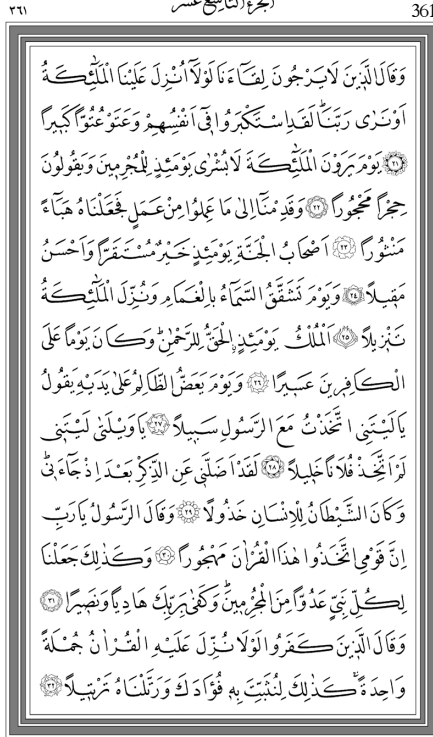 ٣٦١ الجزء التاسع عشر 361
وَقَالَ الَّذِينَ لَا يَرْجُونَ لِقَاءَنَا لَوْلَا أُنْزِلَ عَلَيْنَا الْمَلٰئِكَةُ
اَوْ نَرٰى رَبَّنَا لَقَدِ اسْتَكْبَرُوا فِى اَنْفُسِهِمْ وَعَتَوْ عُتُوًّا كَبِيرًا
﴿٢١﴾ يَوْمَ يَرَوْنَ الْمَلٰئِكَةَ لَا بُشْرٰى يَوْمَئِذٍ لِلْمُجْرِمِينَ وَيَقُولُونَ
حِجْرًا مَحْجُورًا ﴿٢٢﴾ وَقَدِمْنَا اِلٰى مَا عَمِلُوا مِنْ عَمَلٍ فَجَعَلْنَاهُ هَبَاءً
مَنْثُورًا ﴿٢٣﴾ اَصْحَابُ الْجَنَّةِ يَوْمَئِذٍ خَيْرٌ مُسْتَقَرًّا وَاَحْسَنُ
مَقِيلًا ﴿٢٤﴾ وَيَوْمَ تَشَقَّقُ السَّمَاءُ بِالْغَمَامِ وَنُزِّلَ الْمَلٰئِكَةُ
تَنْزِيلًا ﴿٢٥﴾ اَلْمُلْكُ يَوْمَئِذٍ الْحَقُّ لِلرَّحْمٰنِ وَكَانَ يَوْمًا عَلَى
الْكَافِرِينَ عَسِيرًا ﴿٢٦﴾ وَيَوْمَ يَعَضُّ الظَّالِمُ عَلٰى يَدَيْهِ يَقُولُ
يَا لَيْتَنِى اتَّخَذْتُ مَعَ الرَّسُولِ سَبِيلًا ﴿٢٧﴾ يَا وَيْلَتٰى لَيْتَنِى
لَمْ اَتَّخِذْ فُلَانًا خَلِيلًا ﴿٢٨﴾ لَقَدْ اَضَلَّنِى عَنِ الذِّكْرِ بَعْدَ اِذْ جَاءَنِى
وَكَانَ الشَّيْطَانُ لِلْاِنْسَانِ خَذُولًا ﴿٢٩﴾ وَقَالَ الرَّسُولُ يَا رَبِّ
اِنَّ قَوْمِى اتَّخَذُوا هٰذَا الْقُرْاٰنَ مَهْجُورًا ﴿٣٠﴾ وَكَذٰلِكَ جَعَلْنَا
لِكُلِّ نَبِىٍّ عَدُوًّا مِنَ الْمُجْرِمِينَ وَكَفٰى بِرَبِّكَ هَادِيًا وَنَصِيرًا ﴿٣١﴾
وَقَالَ الَّذِينَ كَفَرُوا لَوْلَا نُزِّلَ عَلَيْهِ الْقُرْاٰنُ جُمْلَةً
وَاحِدَةً كَذٰلِكَ لِنُثَبِّتَ بِهِ فُؤَادَكَ وَرَتَّلْنَاهُ تَرْتِيلًا ﴿٣٢﴾